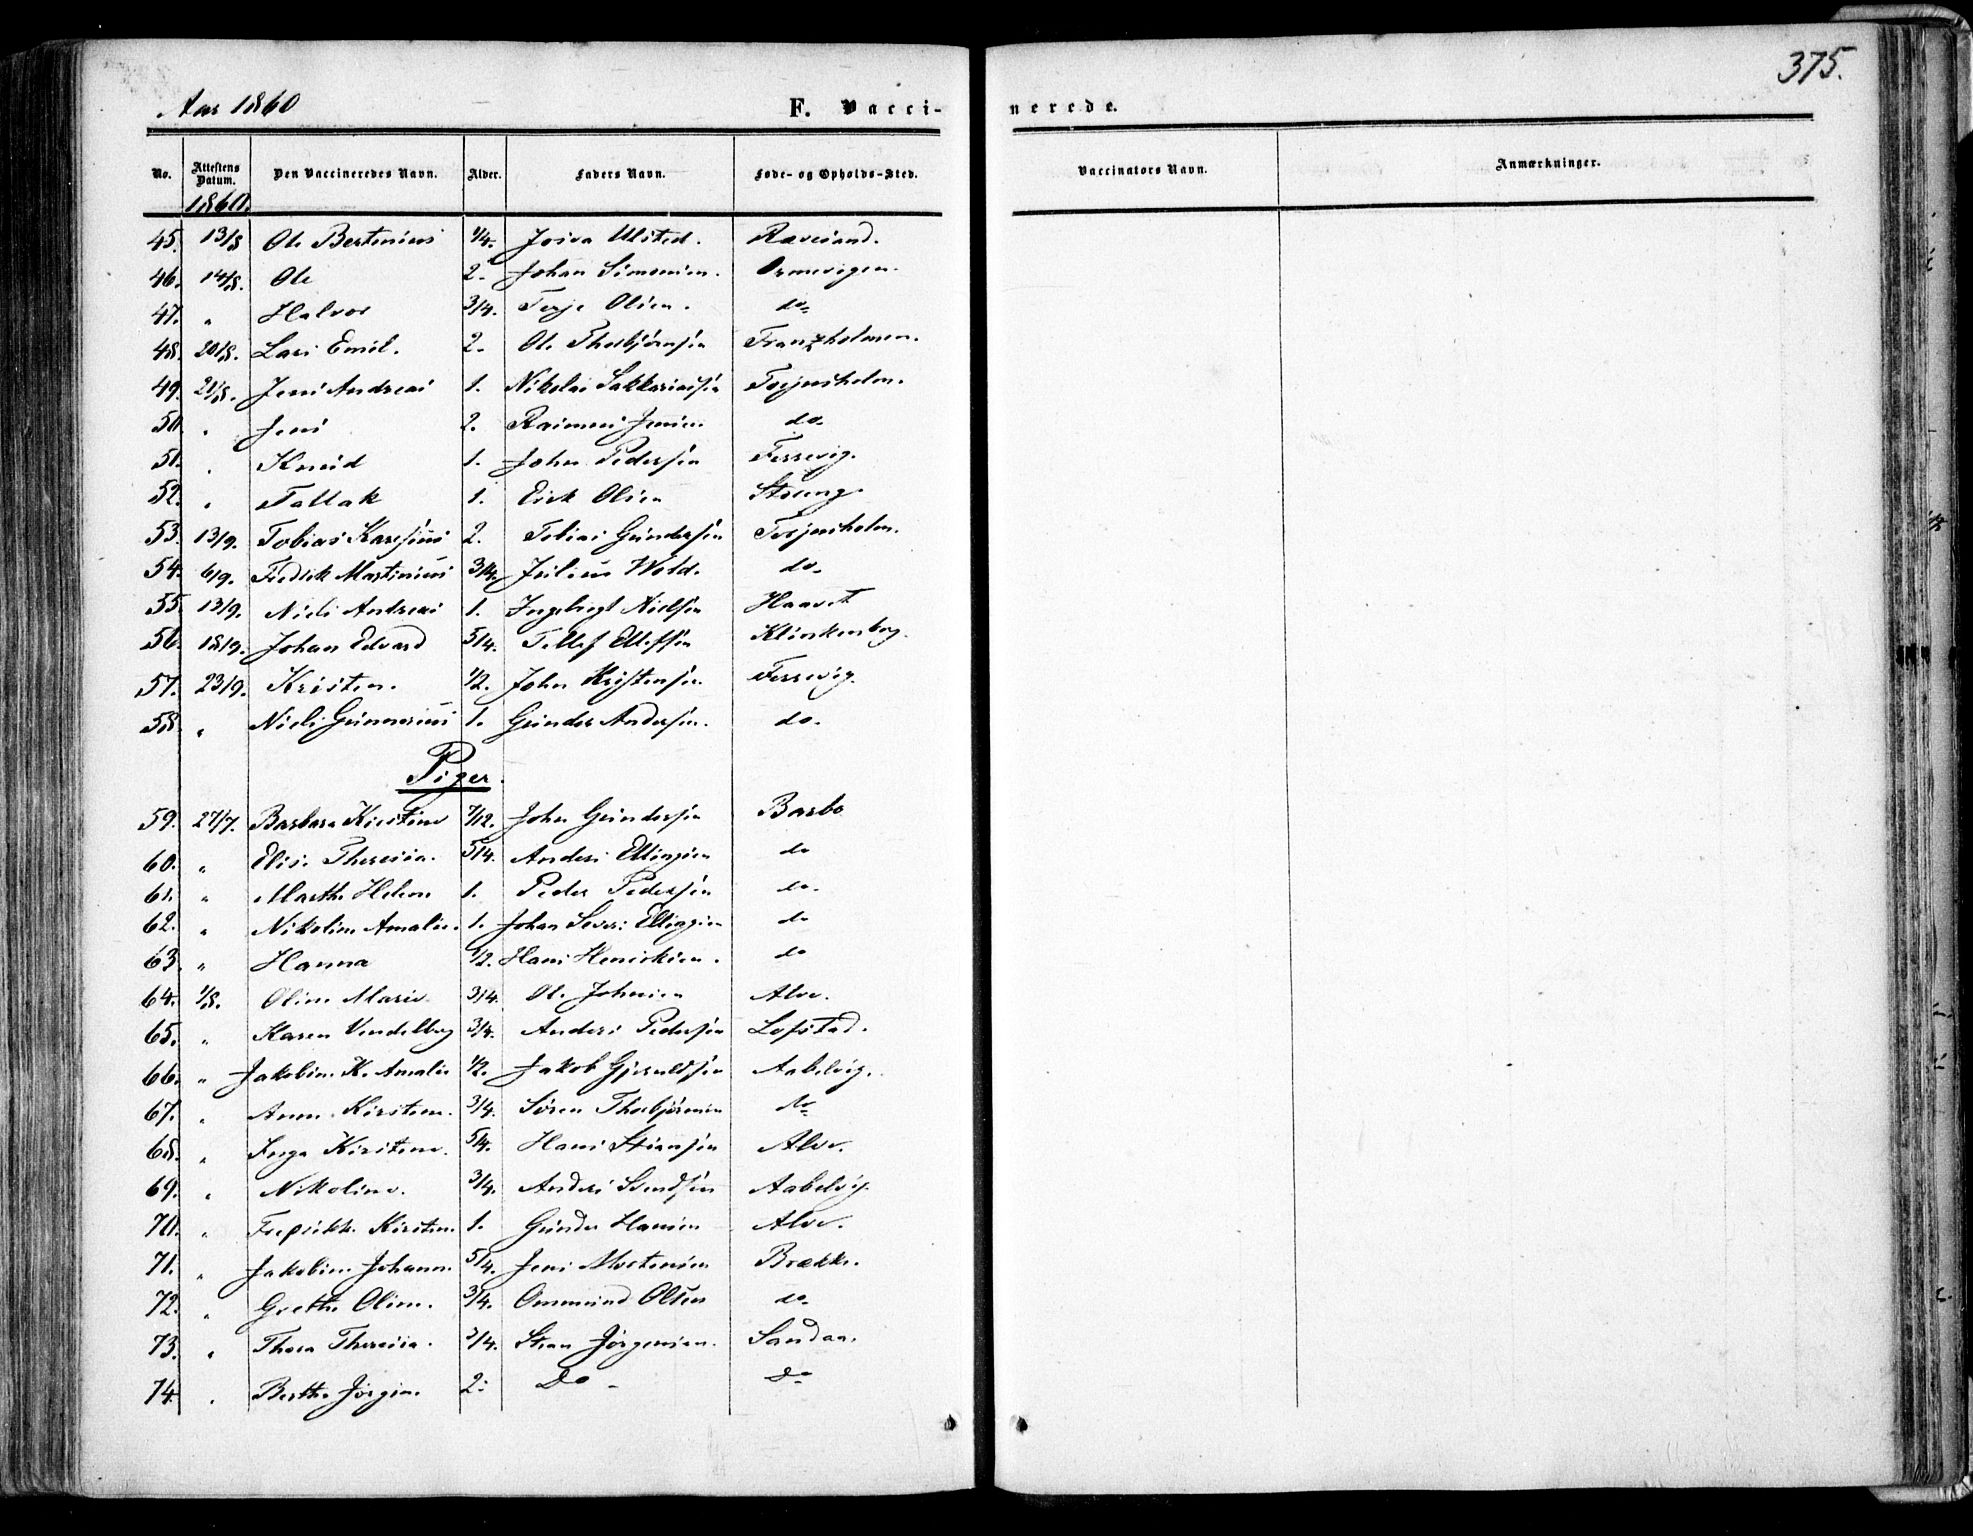 375.
Aar 1860
F. Vacci-
nerede.
No. Attestens Datum. Den Vaccineredes Navn. Alder. Faders Navn. Føde- og Opholds-Sted. Vaccinators Navn. Anmærkninger.
1860.
45. 13/8 Ole Bertinius 1/4. Josva Ulsted. Ravesand.
46. 14/8. Ole 2. Johan Simonsen. Ormevigen.
47. " Halvor 3/4. Terje Olsen. do
48. 20/8. Lars Emil. 2. Ole Thorbjørnsen Franzholmen.
49. 21/8. Jens Andreas 1. Nikolai Sakkariassen Terjusholm.
50 " Jens 2. Jensen. do.
51. " Knud 1. John Pedersen Ferrevig.
52. " Tallak 1. Erik Olsen Streng.
53. 13/9. Tobias Karesius 2. Tobias Gundersen Terjusholm.
54. 6/9. Fredrik Martinius 3/4. Julius Wold. do.
55. 13/9. Niels Andreas 1. Ingebregt Nielsen Haavet
56. 18/9. Johan Edvard 5/4. Tellef Ellefsen Klinkenberg.
57. 23/9. Kristen. 1/2. John Kristensen Ferrevig.
58. " Niels Gunnerius 1. Gunder Andersen. do.
Piger.
59. 27/7. Barbara Kirstine 7/12. John Gundersen Barbo
60. " Elise Theresia. 5/4. Anders Ellingsen do
61. " Marthe Helene 1. Peder Pedersen do.
62. " Nikoline Amalie. 1. Johan Severi Ellingsen do
63. " Hanna 1/2. Hans Henriksen. do
64. 1/8. Oline Marie. 3/4. Ole Johnsen Alve.
65. " Karen Vendelborg 3/4. Anders Pedersen Lofstad.
66. " Jakobine K. Amalie 1/2. Jakob Gjeruldsen Aabelvig.
67. " Anne Kirstine. 3/4. Søren Thorbjørnsen do
68. " Inga Kirstine. 5/4. Hans Stiansen Alve.
69. " Nikoline. 3/4. Anders Svendsen Aabelvig.
70. " Fredrikke Kirstine. 1. Gunder Hansen Alve.
71. " Jakobine Johanne. 5/4. Jens Mortensen Brække.
72. " Grethe Oline. 3/4. Ommund Olsen do.
73. " Thora Theresia. 3/4. Stian Jørgensen. Sandaa.
74. " Berthe Jørgine. 2. Do do